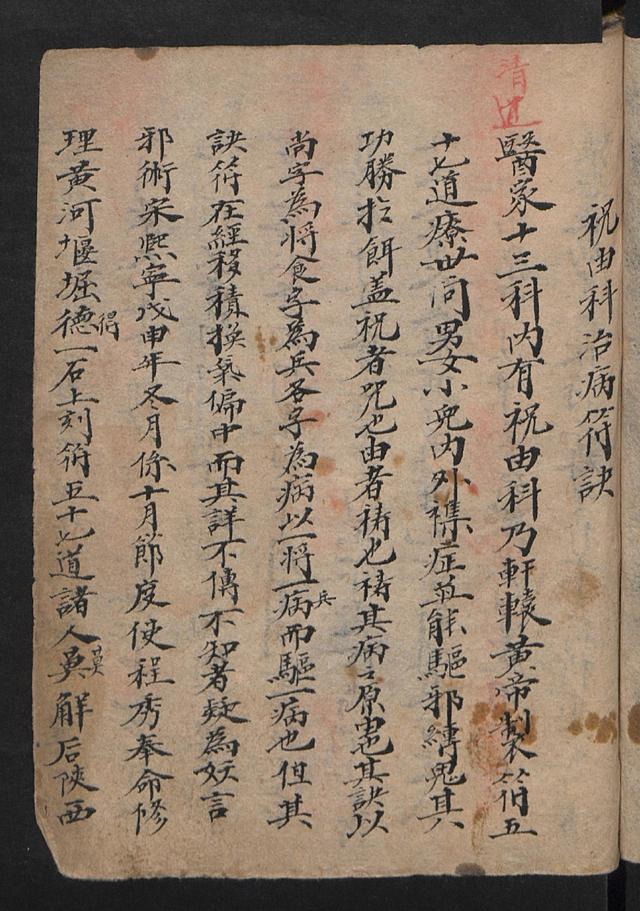 祝由科治病符訣
清道
醫家十三科內有祝由科乃軒轅黃帝製符五
十七道療世间男女小兒內外襍症並能驅邪縛鬼其
功勝扵餌盖祝者咒也由者禱也禱其病之原患其訣以
尚字為將食字為兵各字為病以一將一病兵而驅一病也但其
訣符在經移積換氣偏中而其詳不傳不知者疑為妖言
邪術宋熙寧戊申年冬月係十月節度使程秀奉命修
理黃河堰堀德得一石上刻符五十七道諸人奠莫解后陝西